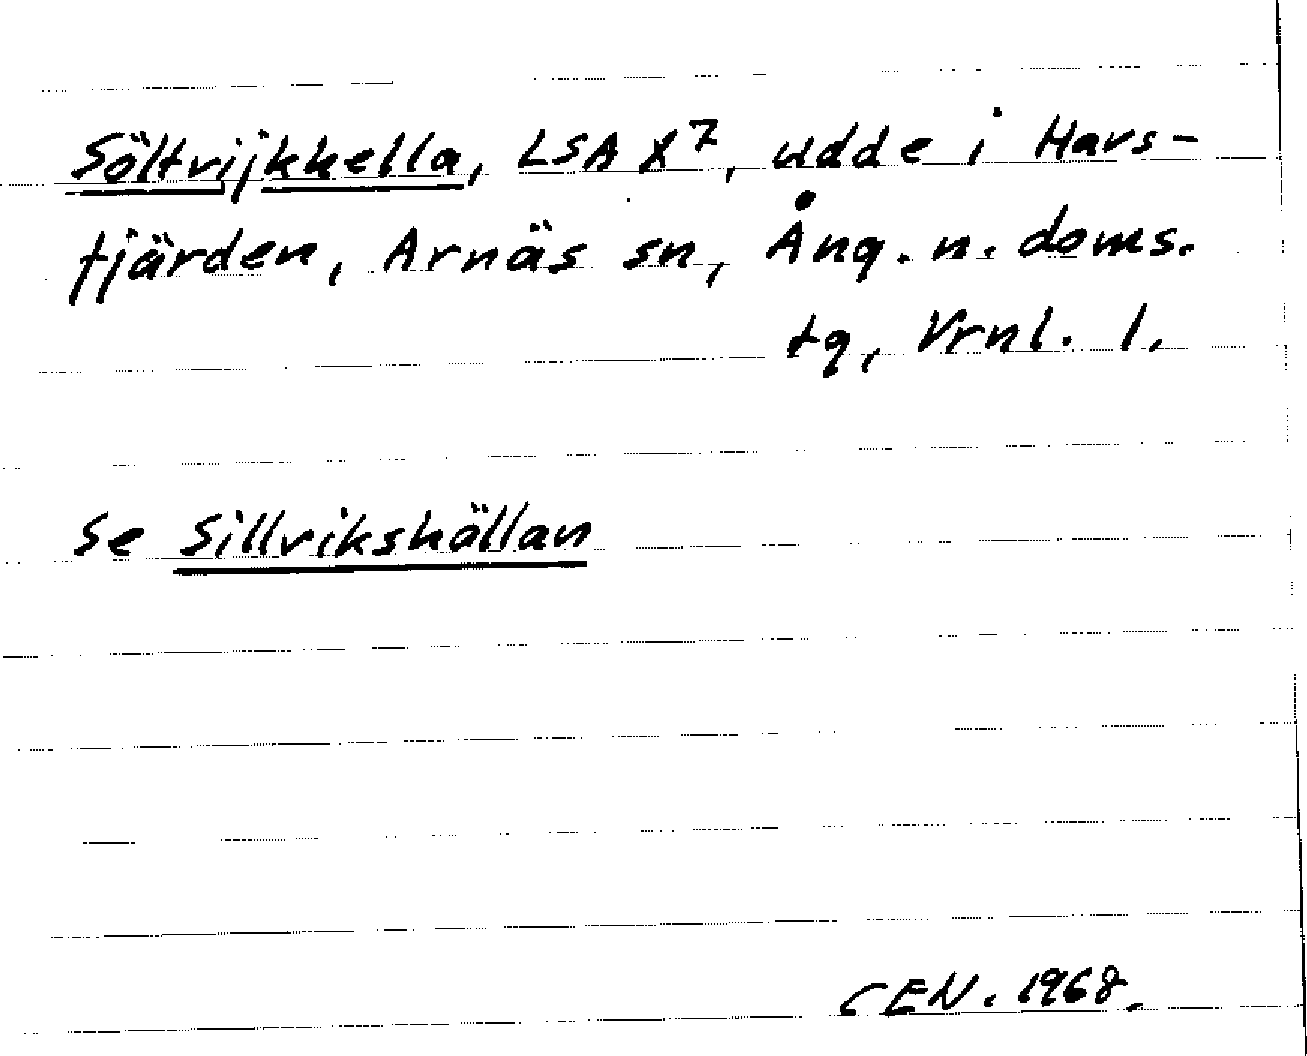 Söltvijkhella, LSA X7, udde i Hars-
fjärden, Arnäs sn, Ång. n. doms.
tg, Vrnl. l.
Se Sillvikshällan
CEN. 1968.